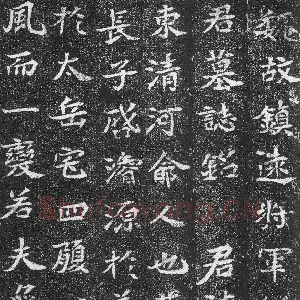 魏故鎮遠將軍
君墓誌銘 君
東清河俞人也
長子啓濬源於
於太岳宅四履
風而一變若夫